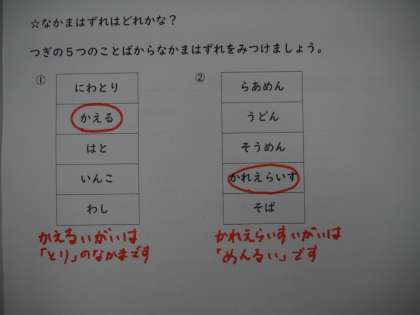 ☆なかまはずれはどれかな？
つぎの５つのことばからなかまはずれをみつけましょう。
①
にわとり
かえる
はと
いんこ
わし
かえるいがいは
「とり」のなかまです
②
らあめん
うどん
そうめん
かれえらいす
そば
かれえらいすいがいは
「めんるい」です